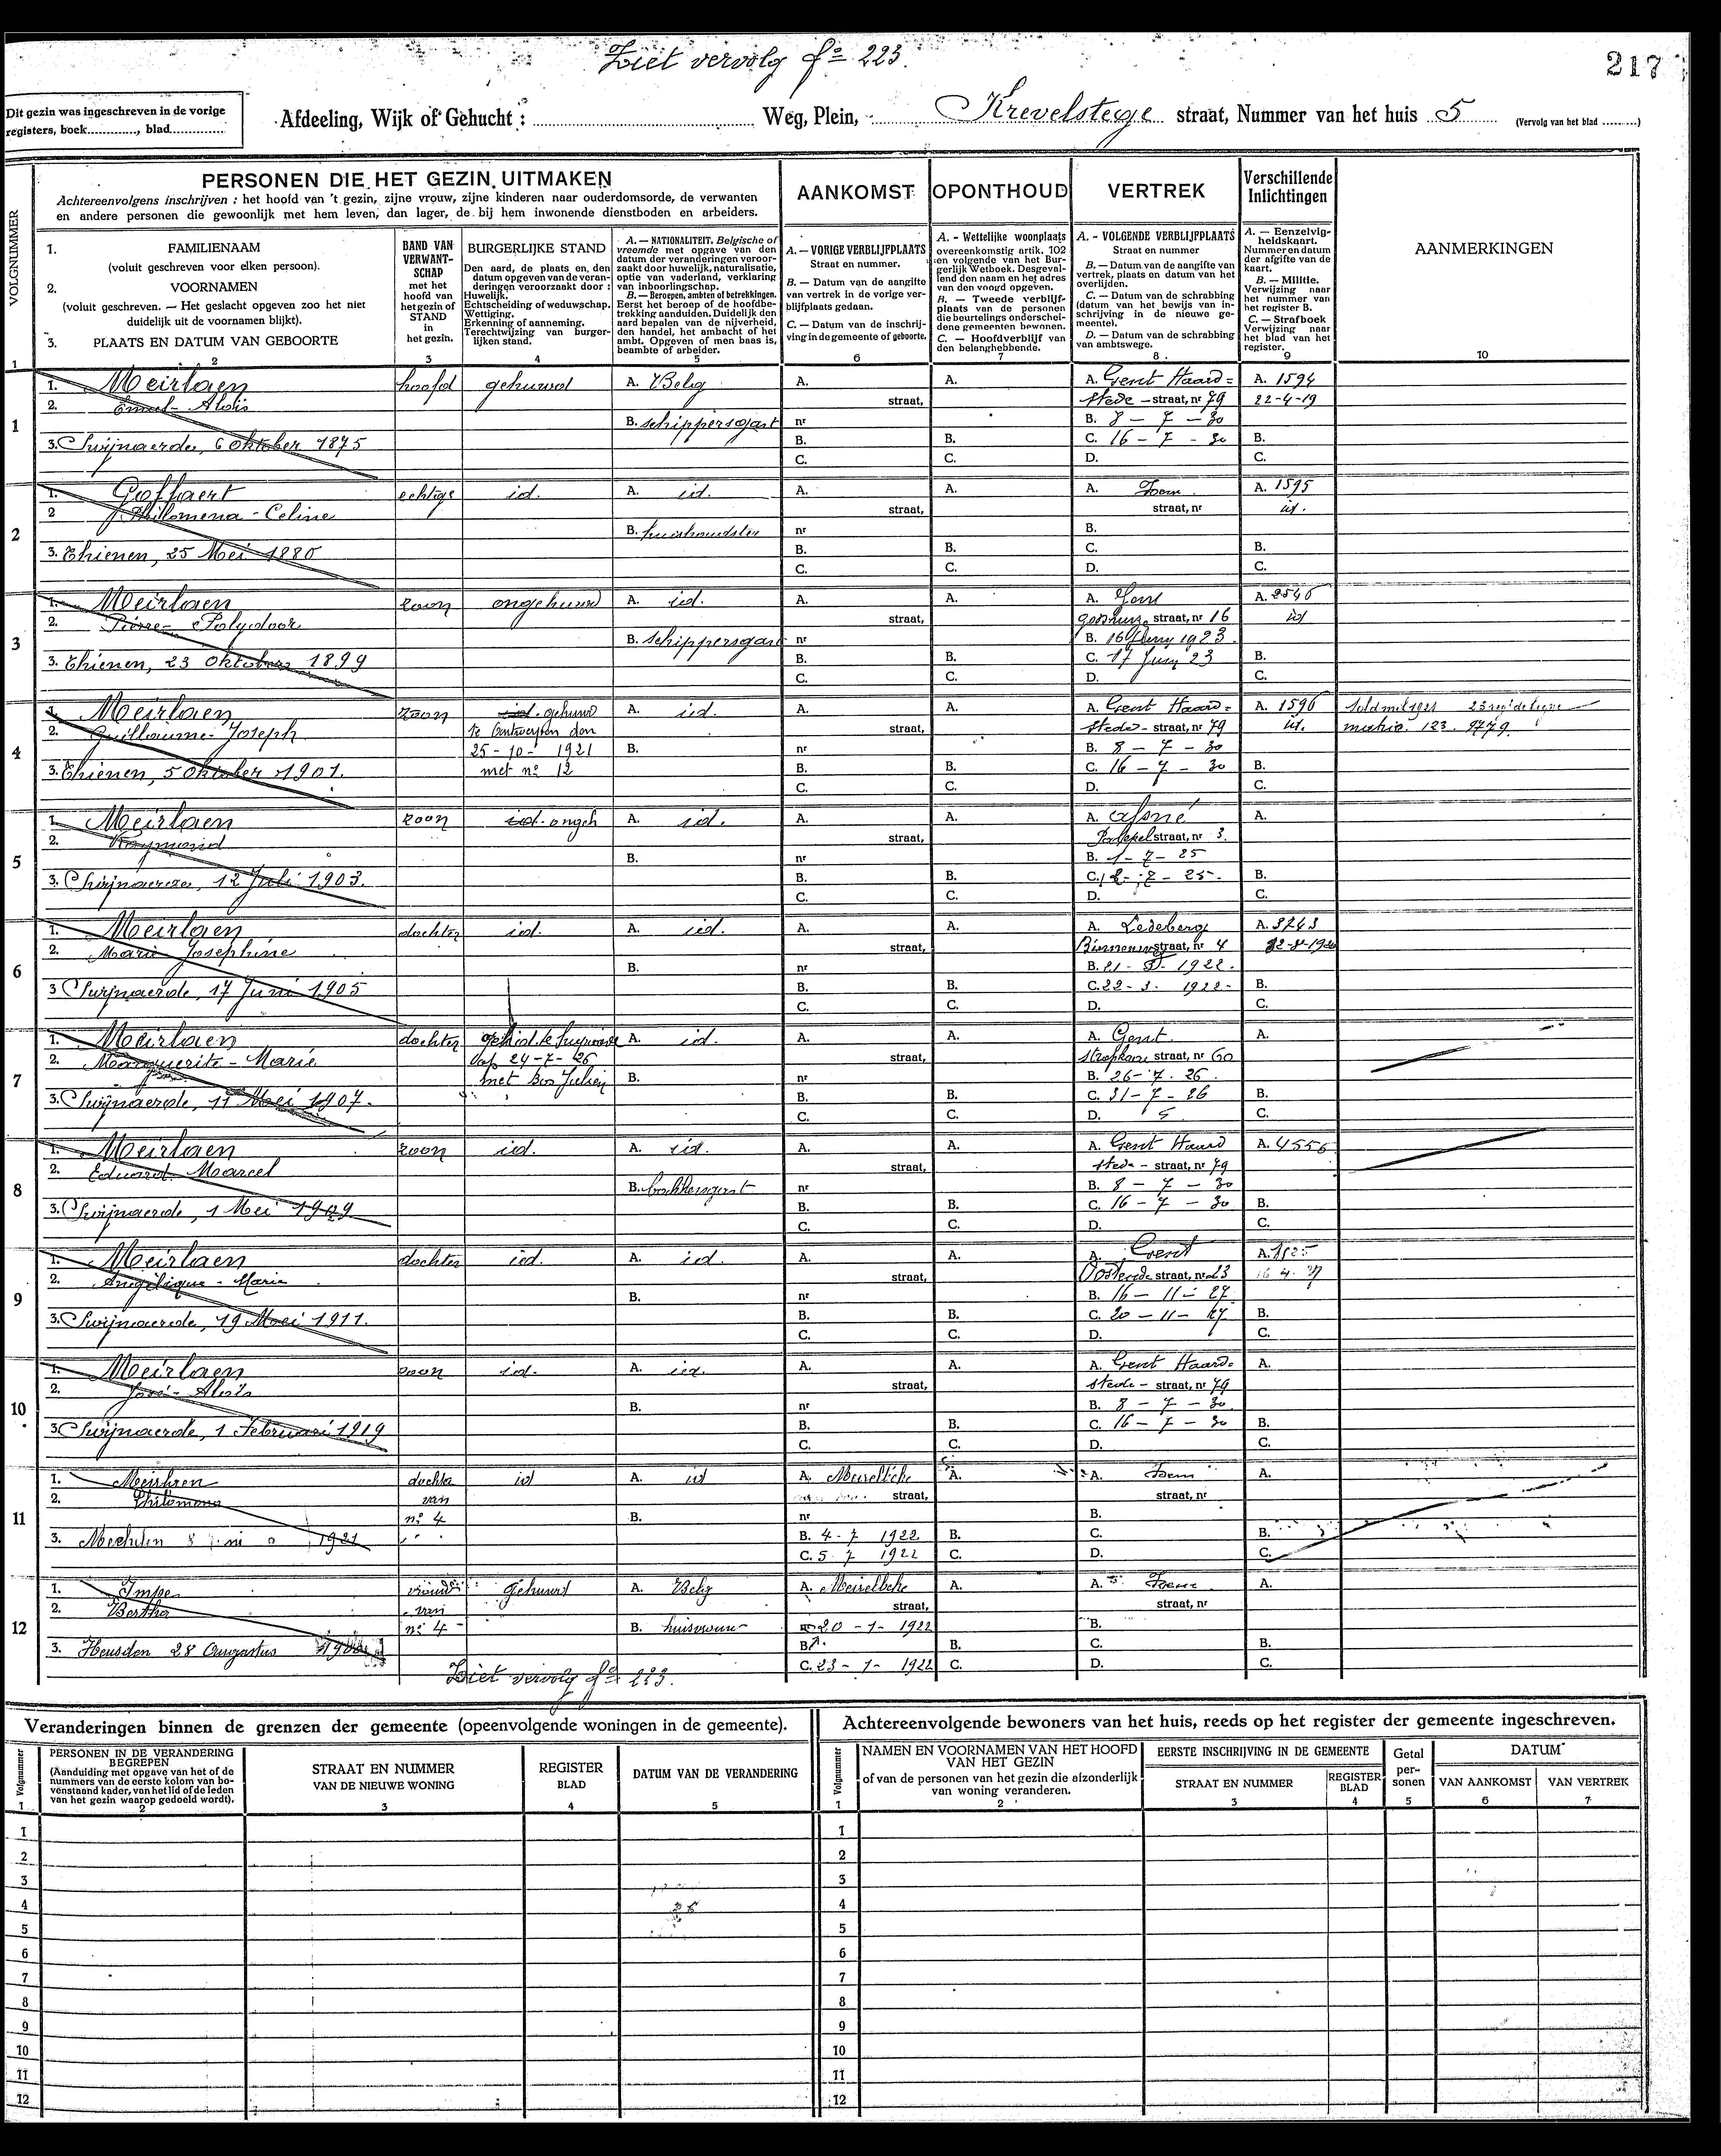 Ziet vervolg fº 223.
217
Dit gezin was ingeschreven in de vorige
registers, boek............, blad..............
Afdeeling, Wijk of Gehucht : Weg, Plein, Krevelstege straat, Nummer van het huis 5 (Vervolg van het blad .........)
PERSONEN DIE HET GEZIN UITMAKEN
Achtereenvolgens inschrijven : het hoofd van 't gezin, zijne vrouw, zijne kinderen naar ouderdomsorde, de verwanten
en andere personen die gewoonlijk met hem leven, dan lager, de bij hem inwonende dienstboden en arbeiders.
AANKOMST
OPONTHOUD
VERTREK
Verschillende
Inlichtingen
VOLGNUMMER
1. FAMILIENAAM
(voluit geschreven voor elken persoon).
2. VOORNAMEN
(voluit geschreven. — Het geslacht opgeven zoo het niet
duidelijk uit de voornamen blijkt).
3. PLAATS EN DATUM VAN GEBOORTE
BAND VAN
VERWANT-
SCHAP
met het
hoofd van
het gezin of
STAND
in
het gezin.
BURGERLIJKE STAND
Den aard, de plaats en den
datum opgeven van de veran-
deringen veroorzaakt door :
Huwelijk.
Echtscheiding of weduwschap.
Wettiging.
Erkenning of aanneming.
Terechtwijzing van burger-
lijken stand.
A. — NATIONALITEIT. Belgische of
vreemde met opgave van den
datum der veranderingen veroor-
zaakt door huwelijk, naturalisatie,
optie van vaderland, verklaring
van inboorlingschap.
B. — Beroepen, ambten of betrekkingen.
Eerst het beroep of de hoofdbe-
trekking aanduiden. Duidelijk den
aard bepalen van de nijverheid,
den handel, het ambacht of het
ambt. Opgeven of men baas is,
beambte of arbeider.
A. — VORIGE VERBLIJFPLAATS
Straat en nummer.
B. — Datum van de aangifte
van vertrek in de vorige ver-
blijfplaats gedaan.
C. — Datum van de inschrij-
ving in de gemeente of geboorte.
A. - Wettelijke woonplaats
overeenkomstig artik. 102
en volgende van het Bur-
gerlijk Wetboek. Desgeval-
lend den naam en het adres
van den voogd opgeven.
B. — Tweede verblijf-
plaats van de personen
die beurtelings onderschei-
dene gemeenten bewonen.
C. — Hoofdverblijf van
den belanghebbende.
A. - VOLGENDE VERBLIJFPLAATS
Straat en nummer
B. — Datum van de aangifte van
vertrek, plaats en datum van het
overlijden.
C. — Datum van de schrabbing
(datum van het bewijs van in-
schrijving in de nieuwe ge-
meente).
D. — Datum van de schrabbing
van ambtswege.
A. — Eenzelvig-
heidskaart.
Nummer en datum
der afgifte van de
kaart.
B. — Militie.
Verwijzing naar
het nummer van
het register B.
C. — Strafboek
Verwijzing naar
het blad van het
register.
AANMERKINGEN
1 2 3 4 5 6 7 8 9 10
1
1. Meirlaen hoofd gehuwd A. Belg A. A. A. Gent Haard= A. 1594
2. Emiel - Aloïs straat, stede - straat, nr 79 22-4-19
B. schippersgast nr B. 8 - 7 - 30
3. Swijnaerde, 6 Oktober 1875 B. B. C. 16 - 7 - 30 B.
C. C. D. C.
2
1. Goffaert echtge id. A. id. A. A. A. Idem A. 1595
2 Philomena - Celine straat, straat, nr id.
B. huishoudster nr B.
3. Thienen, 25 Mei 1880 B. B. C. B.
C. C. D. C.
3
1. Meirlaen zoon ongehuwd A. id. A. A. A. Gent A. 2546
2. Pierre - Polydoor straat, straat, nr 16 id
B. schippersgast nr B. 16 Juny 1923
3. Thienen, 23 Oktober 1899 B. B. C. 17 Juny 23 B.
C. C. D. C.
4
1. Meirlaen zoon id. gehuwd A. id. A. A. A. Gent Haard= A. 1596
2. Guillaume - Joseph te Antwerpen den straat, stede - straat, nr 79 id.
25 - 10 - 1921 B. nr B. 8 - 7 - 30
3. Thienen, 5 Oktober 1901. met nº 12 B. B. C. 16 - 7 - 30 B.
C. C. D. C.
5
1. Meirlaen zoon id. ongeh A. id. A. A. A. Afsné A.
2. Raymond straat, straat, nr 3.
B. nr B. 1 - 7 - 25
3. Swijnaerde, 12 Juli 1903. B. B. C. B.
C. C. D. C.
6
1. Meirlaen dochter id. A. id. A. A. A. Ledeberg A. 3743
2. Marie Josephine straat, straat, nr 4
B. nr B. 21 - 3 - 1922.
3 Swijnaerde, 17 Juni 1905 B. B. C. 22 - 3. 1922 - B.
C. C. D. C.
7
1. Meirlaen dochter A. id. A. A. A. Gent A.
2. Marguerite - Marie 24 - 7 - 26 straat, Stropkaai straat, nr 60
met Bos Julien B. nr B. 26 - 7 - 26.
3. Swijnaerde, 11 Mei 1907. B. B. C. 31 - 7 - 26 B.
C. C. D. C.
8
1. Meirlaen zoon id. A. id. A. A. A. Gent Haard A. 4556
2. Eduard Marcel straat, stede - straat, nr 79
B. bakkersgast nr B. 8 - 7 - 30
3. Swijnaerde, 1 Mei 1909 B. B. C. 16 - 7 - 30 B.
C. C. D. C.
9
1. Meirlaen dochter id. A. id. A. A. A. Gent A.
2. Angélique - Marie straat, Oostende straat, nr 23
B. nr B. 16 - 11 - 27
3. Swijnaerde, 19 Mei 1911. B. B. C. 20 - 11 - 27 B.
C. C. D. C.
10
1. Meirlaen zoon id. A. id. A. A. A. Gent Haard= A.
2. José - Aloïs straat, stede - straat, nr 79
B. nr B. 8 - 7 - 30
3 Swijnaerde, 1 Februari 1919 B. B. C. 16 - 7 - 30 B.
C. C. D. C.
11
1. Meirlaen dochter id A. id A. Meirelbeke A. A. Idem A.
2. Philomena van straat, straat, nr
nº 4 B. nr B.
3. Mechelen 1921 B. 4 - 7 1922 B. C. B.
C. 5 7 1922 C. D. C.
12
1. Impe vrouw gehuwd A. Belg A. Meirelbeke A. A. Idem A.
2. Bertha van straat, straat, nr
nº 4 B. huisvrouw nr 20 - 1 - 1922 B.
3. Heusden 28 Augustus B. B. C. B.
Ziet vervolg fº 223. C. 23 - 1 - 1922 C. D. C.
Veranderingen binnen de grenzen der gemeente (opeenvolgende woningen in de gemeente).
Volgnummer
PERSONEN IN DE VERANDERING
BEGREPEN
(Aanduiding met opgave van het of de
nummers van de eerste kolom van bo-
venstaand kader, van het lid of de leden
van het gezin waarop gedoeld wordt).
STRAAT EN NUMMER
VAN DE NIEUWE WONING
REGISTER
BLAD
DATUM VAN DE VERANDERING
1 2 3 4 5
1
2
3
4
5
6
7
8
9
10
11
12
Achtereenvolgende bewoners van het huis, reeds op het register der gemeente ingeschreven.
Volgnummer
NAMEN EN VOORNAMEN VAN HET HOOFD
VAN HET GEZIN
of van de personen van het gezin die afzonderlijk
van woning veranderen.
EERSTE INSCHRIJVING IN DE GEMEENTE
STRAAT EN NUMMER
REGISTER
BLAD
Getal
per-
sonen
DATUM
VAN AANKOMST
VAN VERTREK
1 2 3 4 5 6 7
1
2
3
4
5
6
7
8
9
10
11
12